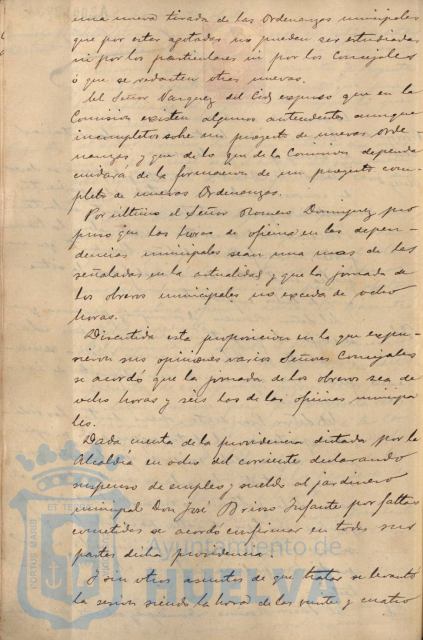 una nueva tirada de las Ordenanzas municipales
que por estar agotadas no pueden ser estudiadas
ni por los particulares ni por los Concejales
ó que se redacten otras nuevas.
El Señor Vazquez del Cid expuso que en la
Comision existen algunos antecedentes aunque
incompletos sobre un proyecto de nuevas orde-
nanzas y que de lo que de la Comision dependa
cuidara de la formacion de un proyecto com-
pleto de nuevas Ordenanzas.
Por ultimo el Señor Romero Dominguez pro
puso que las horas de oficina en las depen-
dencias municipales sean una mas de las
señaladas en la actualidad y que la jornada de
los obreros municipales no exceda de ocho
horas.
Discutida esta proposicion en la que expu-
sieron sus opiniones varios Señores Concejales
se acordó que la jornada de los obreros sea de
ocho horas y seis las de las oficinas municipa
les.
Dada cuenta de la providencia dictada por la
Alcaldía en ocho del corriente declarando
suspenso de empleo y sueldo al jardinero
municipal Don José Brioso Infante por faltas
cometidas se acordó confirmar en todas sus
partes dicha providencia.
I sin otros asuntos de que tratar se levantó
la sesion siendo la hora de las veinte y cuatro
PORTUS MARIS
ET TE
Ayuntamiento de
HUELVA